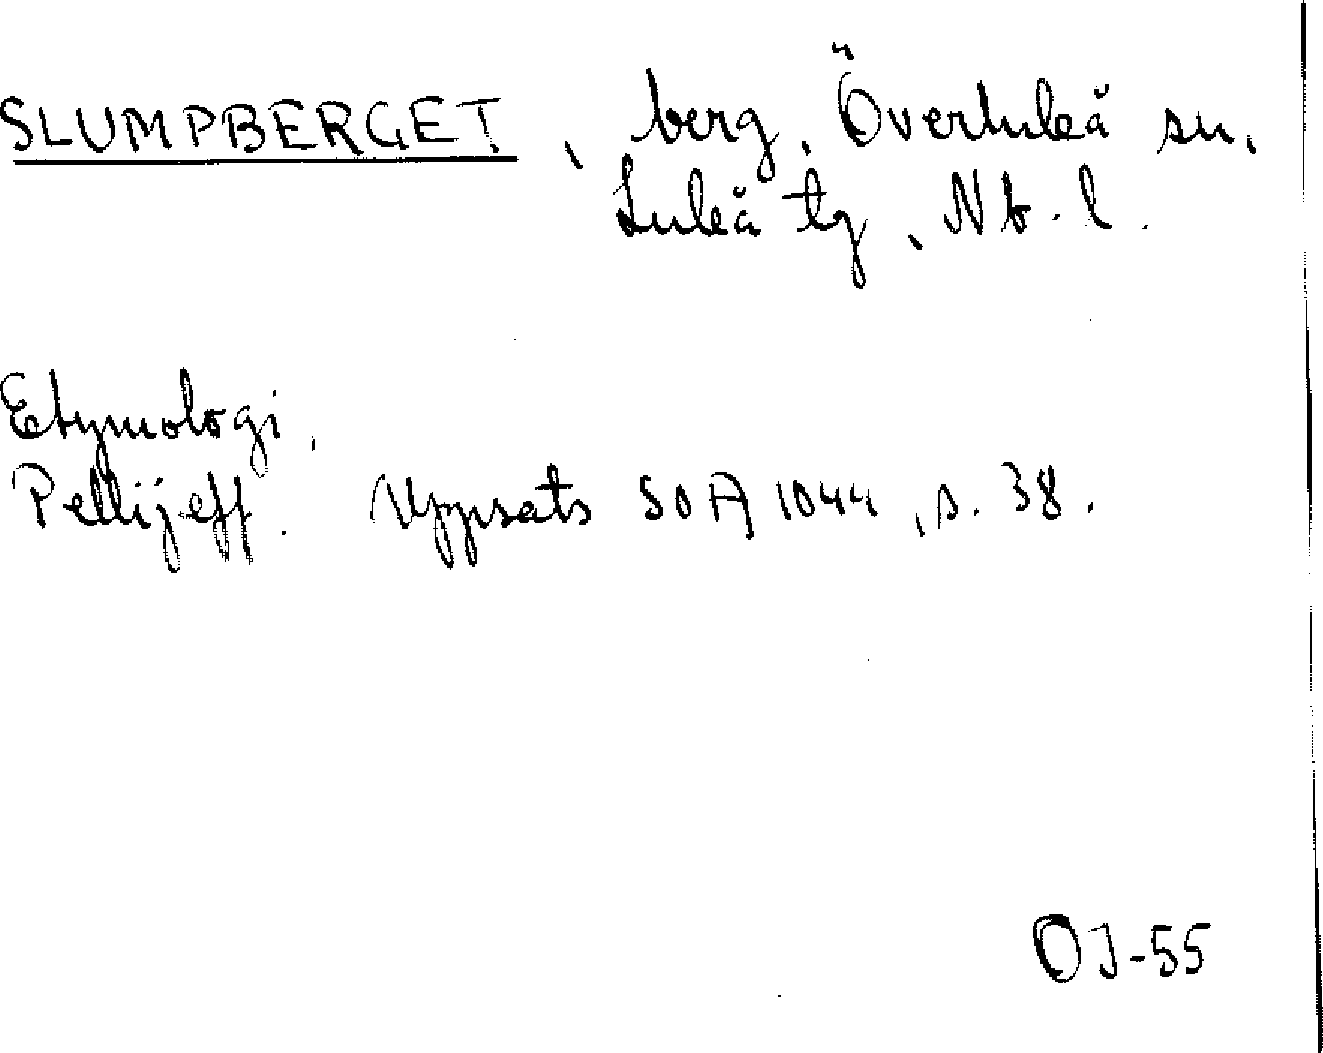 SLUMPBERGET, berg, Överluleå sn,
Luleå tg, Nb. l.
Etymologi.
Pellijeff. Uppsats SOA 1044, s. 38.
OJ-55